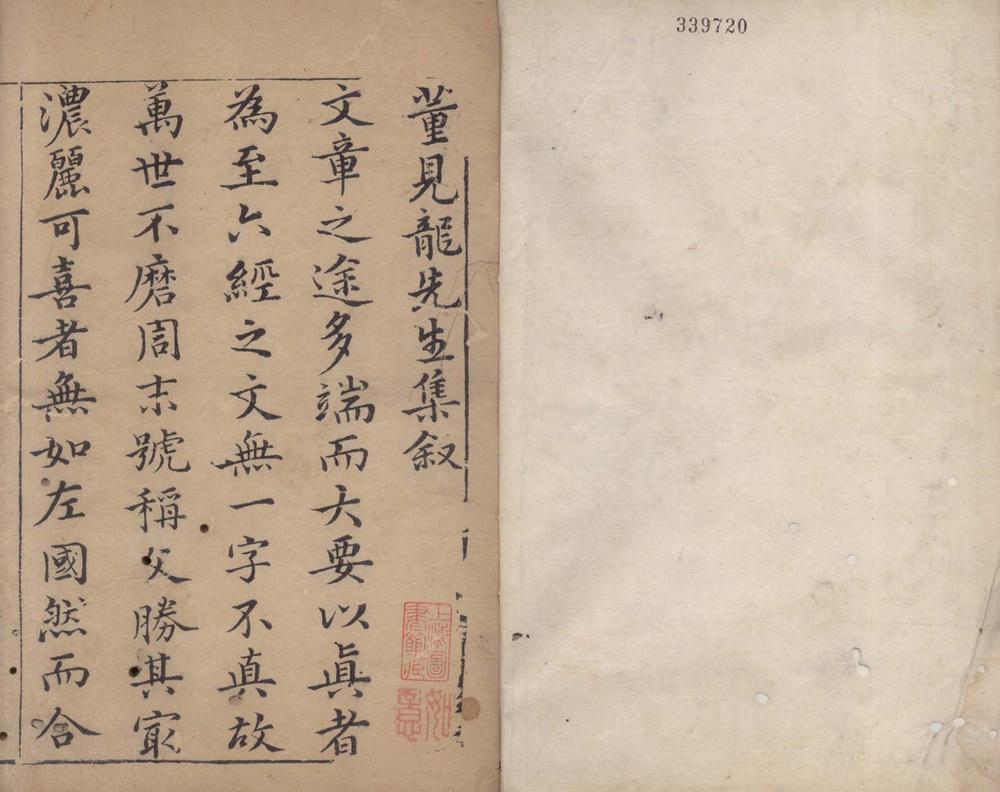 339720
董見龍先生集叙
文章之途多端而大要以眞者
為至六經之文無一字不真故
萬世不磨周末號稱文勝其㝡
濃麗可喜者無如左國然而合
上海圖書館藏